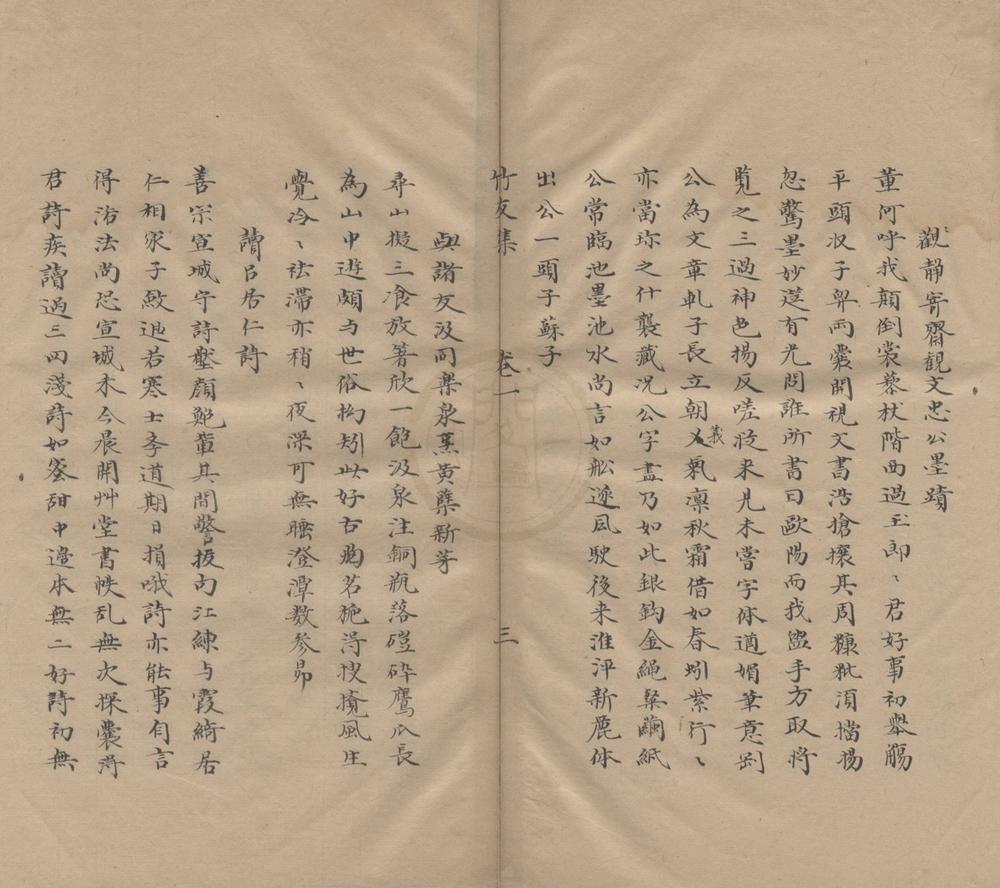 觀静寄齋觀文忠公墨蹟
董何呼我顛倒裳蔾杖階西過玉郎〻君好事初舉觴
平頭奴子舁兩囊開視文書浩搶攘其周糠粃湏擋揚
忽驚墨妙莚有光問誰所書曰歐陽而我盥手方取將
覧之三過神色揚反嗟從来見未嘗字体遒媚筆意剛
公為文章軋子長立朝义義氣凛秋霜借如春蚓縈行〻
亦當珎之什襲藏况公字畫乃如此銀鈎金繩粲繭紙
公常臨池墨池水尚言如舩逆風駛後来淮泙新麗体
出公一頭子蘇子
竹友集 卷一 三
與諸友汲同樂泉烹黄蘗新芽
尋山擬三飡放箸欣一飽汲泉注銅瓶落磑碎鷹爪長
為山中逰頗与世俗拘矧此好古胸茗椀得搜攪風生
覺冷〻祛滯亦稍〻夜深可無睡澄潭数参昴
讀吕居仁詩
善宗宣城守詩壓顔鮑輩其間警拔句江練与霞綺居
仁相家子敛迹若寒士李道期日損哦詩亦能事自言
得治法尚恐宣城未今晨開艸堂書帙乱無次探囊得
君詩疾讀過三四淺詩如蜜甜中邉本無二好詩初無